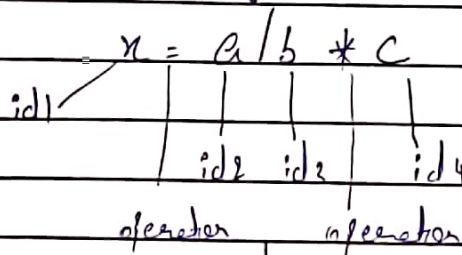 x = a / b * c
id1
id2 id3 id4
operator operator